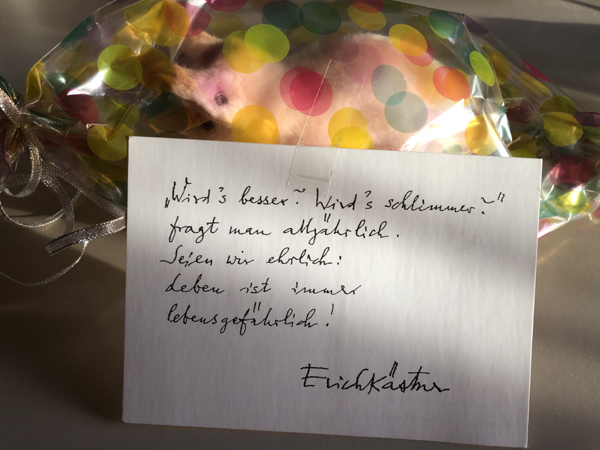 „Wird's besser? Wird's schlimmer?"
fragt man alljährlich.
Seien wir ehrlich:
Leben ist immer
lebensgefährlich!
Erich Kästner